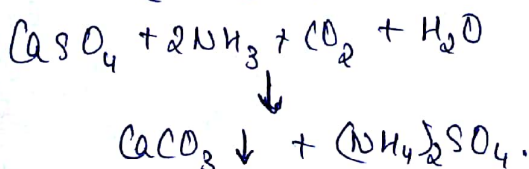 CaSO₄ + 2NH₃ + CO₂ + H₂O
↓
CaCO₃ ↓ + (NH₄)₂SO₄.